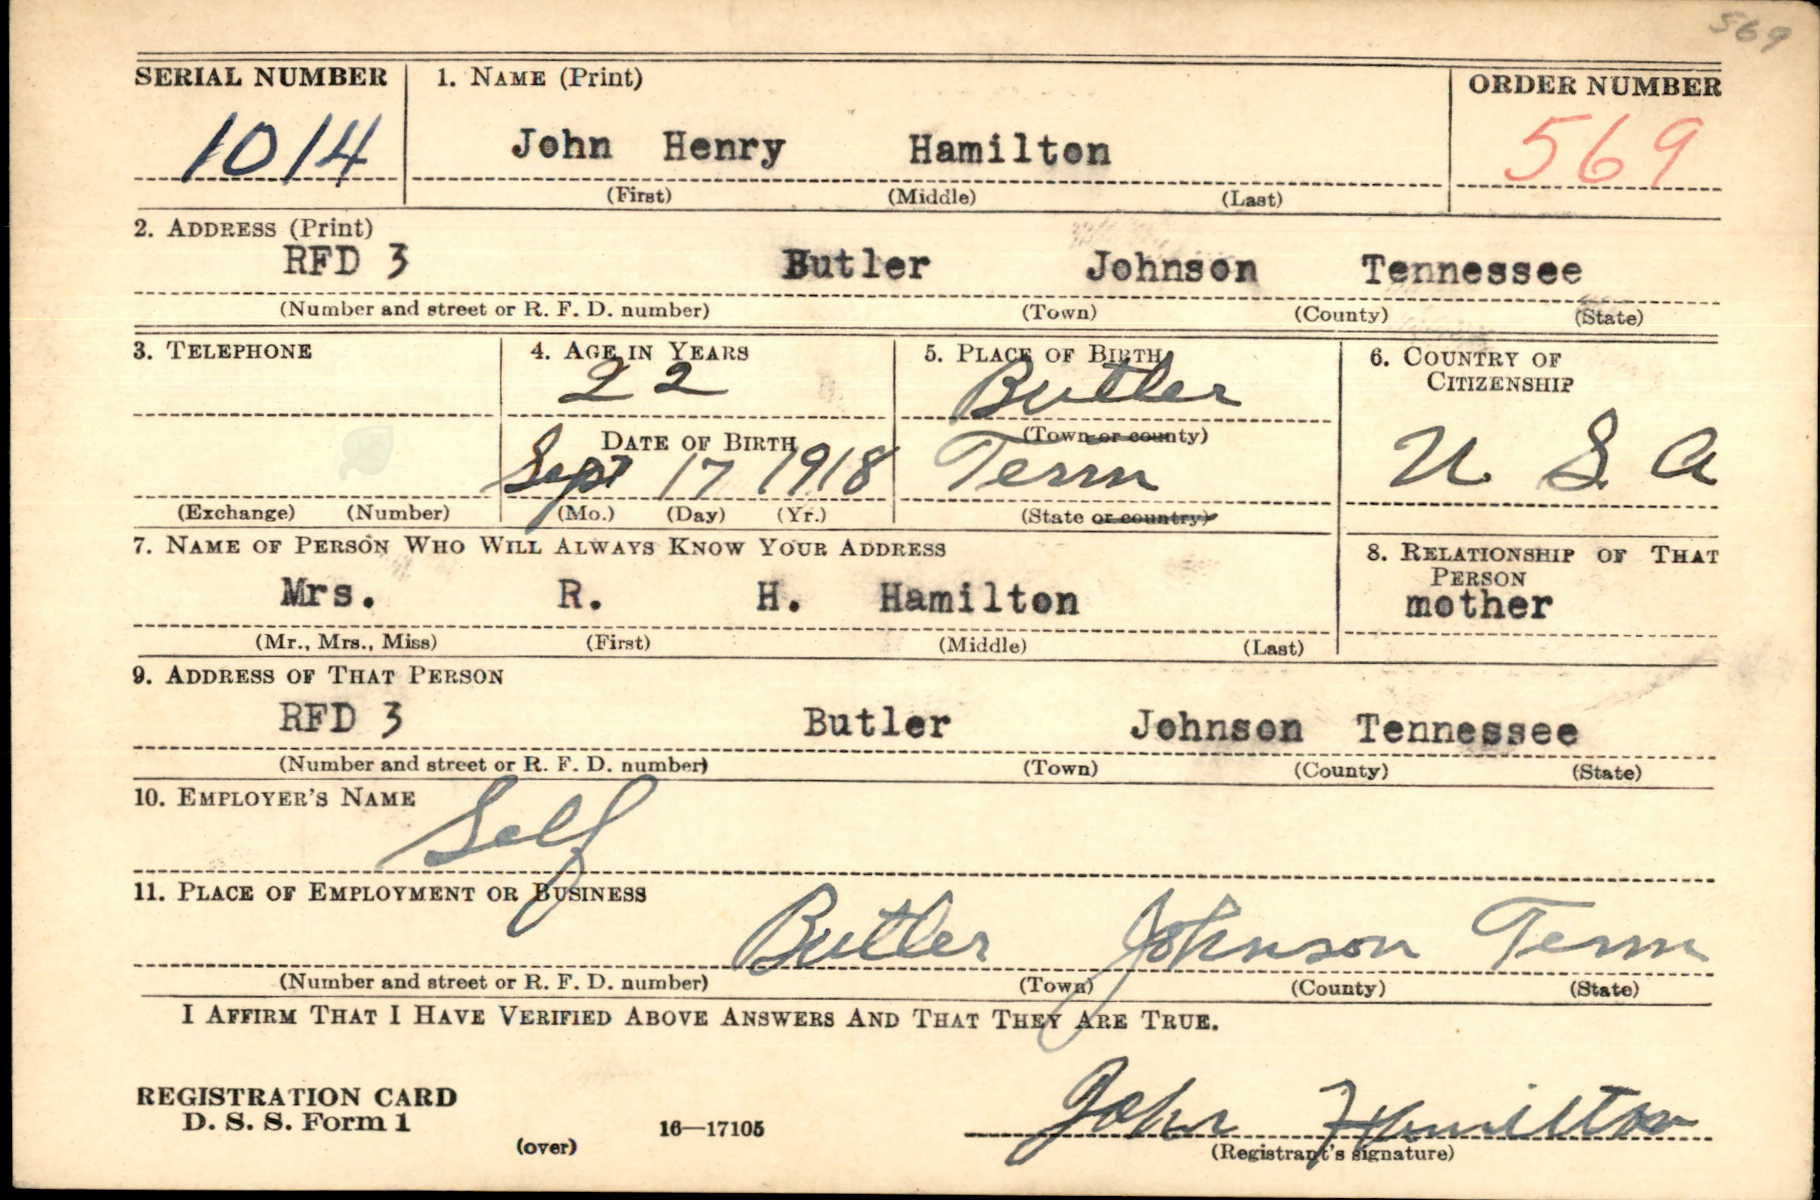 569
SERIAL NUMBER 1. NAME (Print) ORDER NUMBER
1014 John Henry Hamilton 569
(First) (Middle) (Last)
2. ADDRESS (Print)
RFD 3 Butler Johnson Tennessee
(Number and street or R. F. D. number) (Town) (County) (State)
3. TELEPHONE 4. AGE IN YEARS 5. PLACE OF BIRTH 6. COUNTRY OF CITIZENSHIP
22 Butler
DATE OF BIRTH (Town or county)
Sept 17 1918 Tenn U. S. A
(Exchange) (Number) (Mo.) (Day) (Yr.) (State or country)
7. NAME OF PERSON WHO WILL ALWAYS KNOW YOUR ADDRESS 8. RELATIONSHIP OF THAT PERSON
Mrs. R. H. Hamilton mother
(Mr., Mrs., Miss) (First) (Middle) (Last)
9. ADDRESS OF THAT PERSON
RFD 3 Butler Johnson Tennessee
(Number and street or R. F. D. number) (Town) (County) (State)
10. EMPLOYER'S NAME
Self
11. PLACE OF EMPLOYMENT OR BUSINESS
Butler Johnson Tenn
(Number and street or R. F. D. number) (Town) (County) (State)
I AFFIRM THAT I HAVE VERIFIED ABOVE ANSWERS AND THAT THEY ARE TRUE.
REGISTRATION CARD
D. S. S. Form 1 (over) 16—17105 John Hamilton
(Registrant's signature)